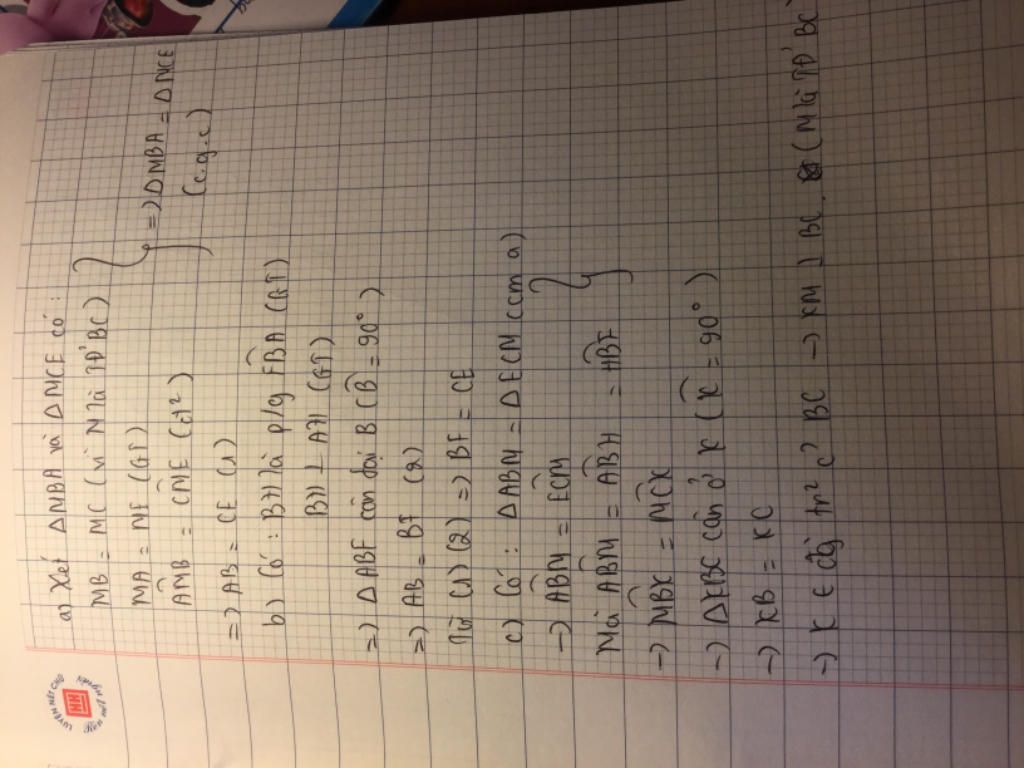 LUYỆN NÉT CHỮ
a) Xét ΔMBA và ΔMCE có:
MB = MC (vì M là TĐ' BC)
MA = ME (GT)
AMB = CME (đ²)
=) ΔMBA = ΔMCE
(c.g.c)
=) AB = CE (1)
b) Có: BH là p/g FBA (GT)
BH ⊥ AH (GT)
=) Δ ABF cân tại B (B = 90°)
=) AB = BF (2)
Từ (1) (2) =) BF = CE
c) Có: ΔABM = ΔECM (cm a)
→ ABM = ECM
Mà ABM = ABH = HBF
→ MBK = MCK
→ ΔEBC cân ở K (K = 90°)
→ KB = KC
→ K ∈ đg tr² c² BC → KM ⊥ BC (M là TĐ' BC)